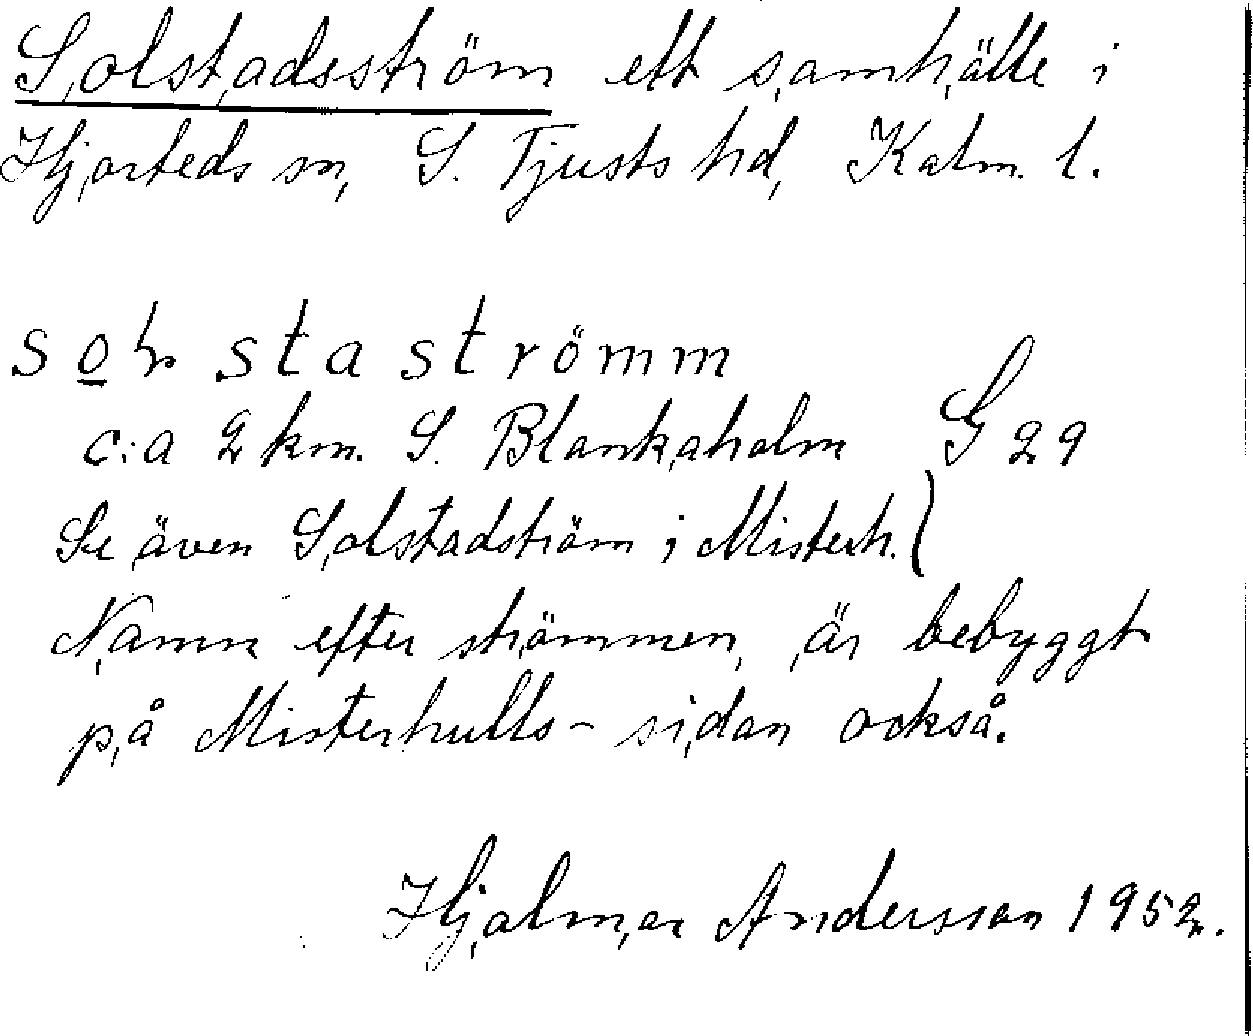 Solstadsström ett samhälle i
Hjorteds sn, S. Tjusts hd, Kalm. l.
staströmm
c:a 2 km. S. Blankaholm G 29
Se även Solstadström i Misterh.)
Namn efter strömmen, är bebyggt
på Misterhults-sidan också.
Hjalmar Andersson 1952.